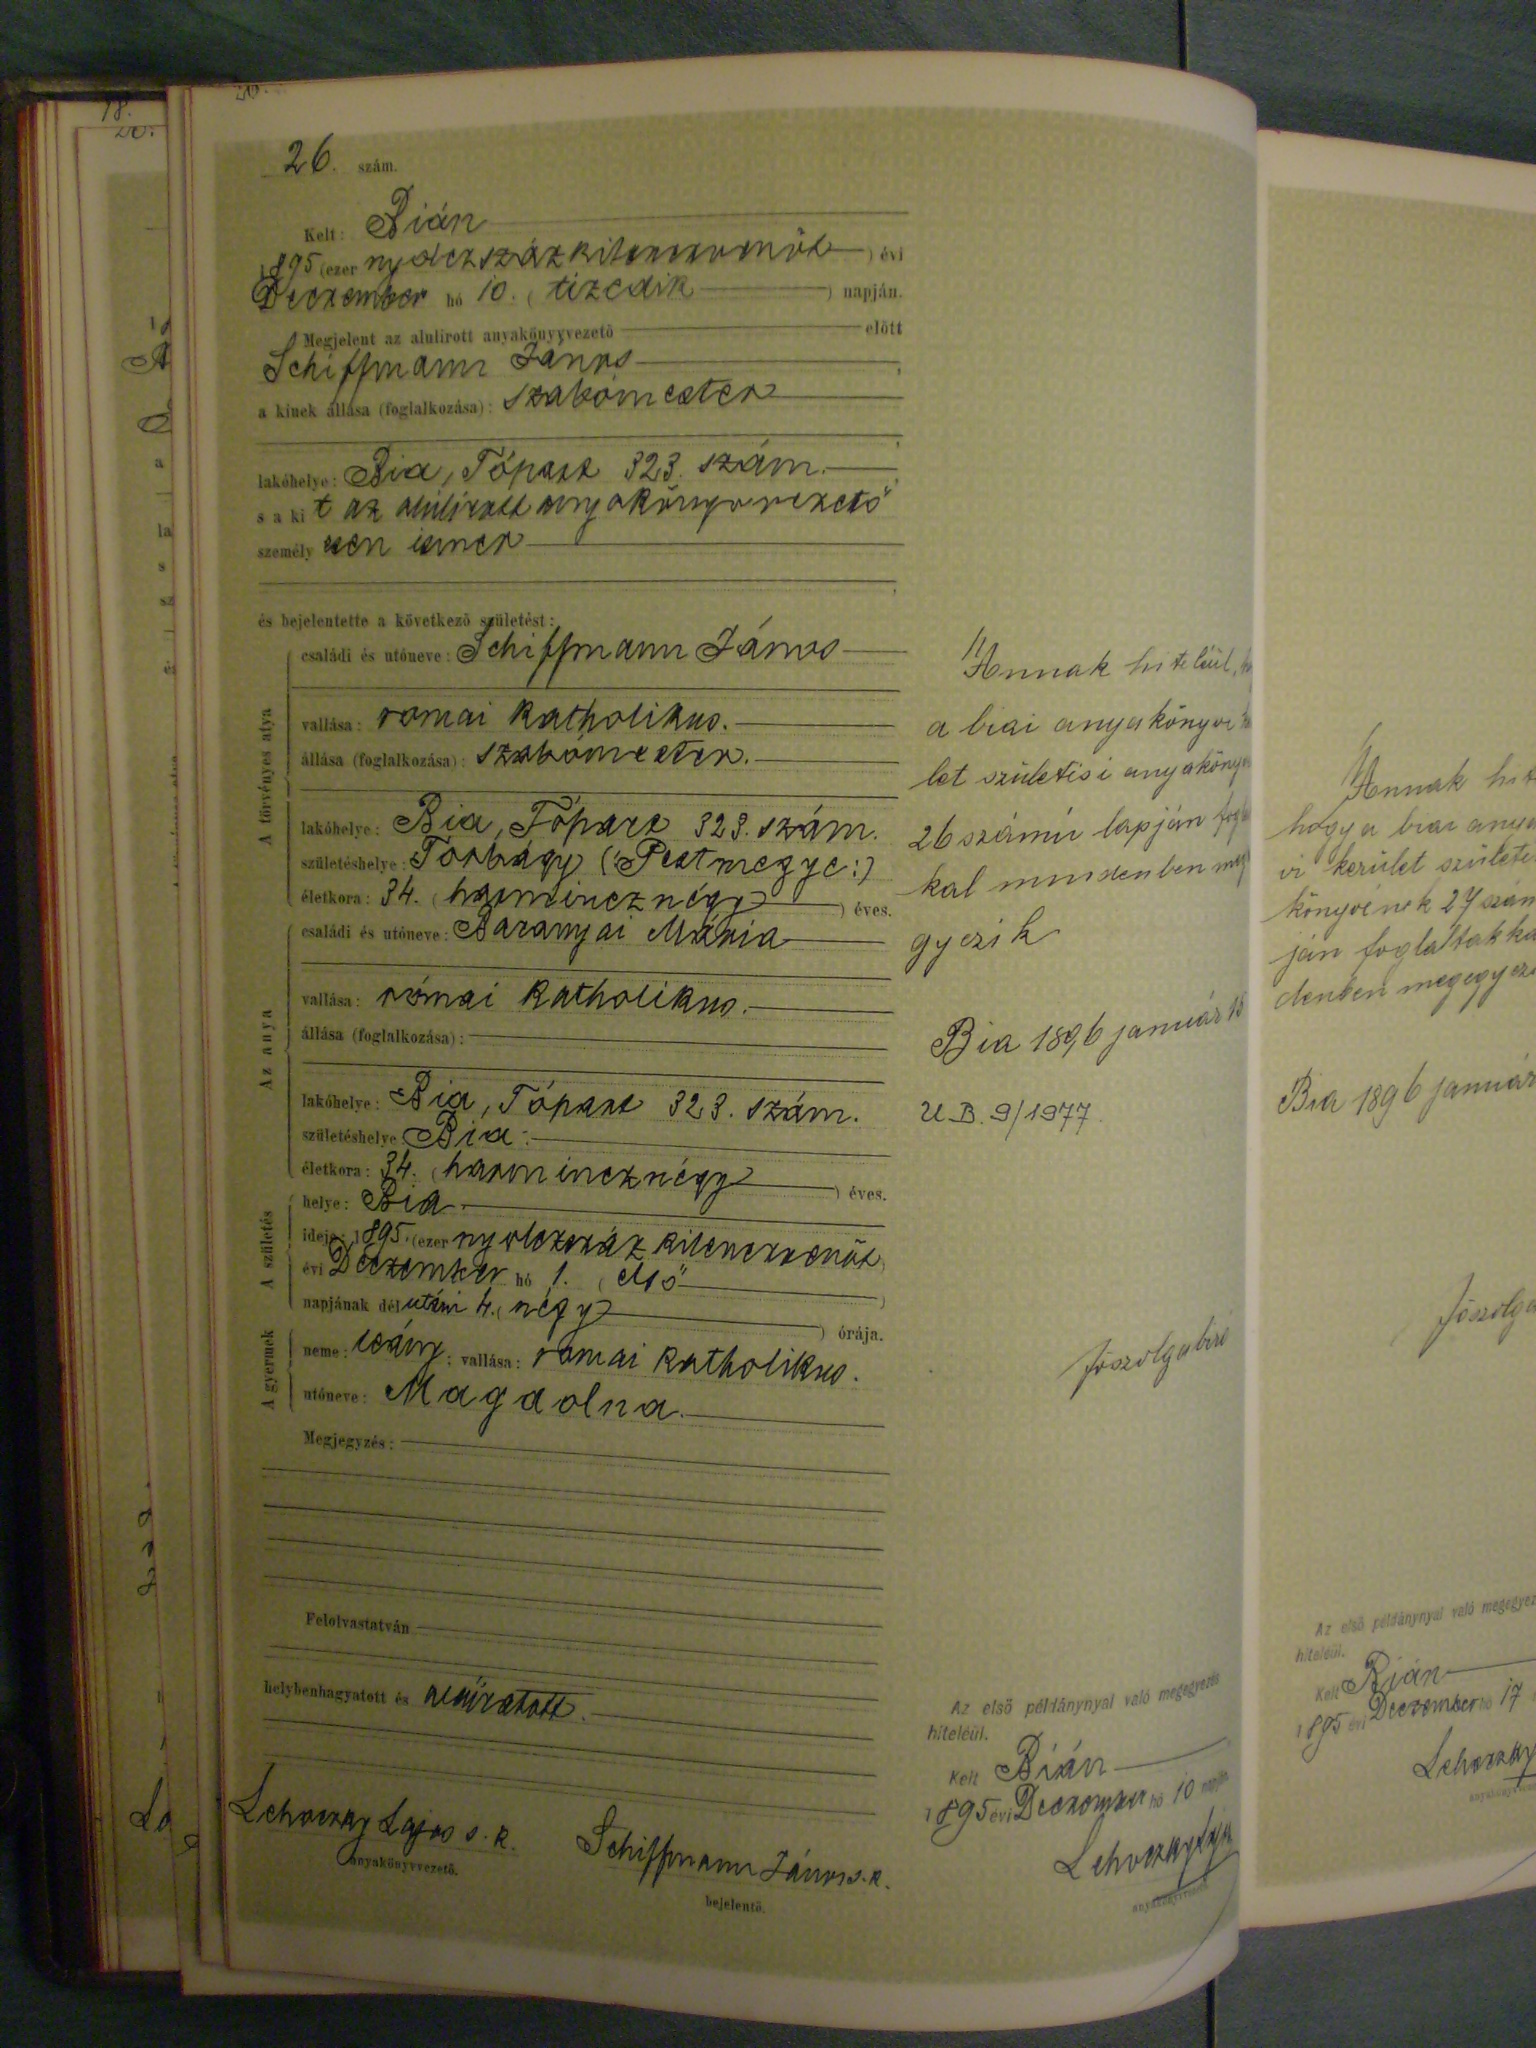 26. szám.
Kelt: Bián
1895 (ezer nyolczszázkilenczvenöt) évi
Deczember hó 10. (tizedik) napján.
Megjelent az alulirott anyakönyvvezető előtt
Schiffmann János
a kinek állása (foglalkozása): szabómester
lakóhelye: Bia, Tópart 323. szám.
s a ki t az alulírott anyakönyvvezető
személy esen ismer
és bejelentette a következő születést:
A törvényes atya
családi és utóneve: Schiffmann János
vallása: római katholikus.
állása (foglalkozása): szabómester.
lakóhelye: Bia, Tópart 323. szám.
születéshelye: Torbágy (:Pestmegye:)
életkora: 34. (harmincznégy) éves.
Az anya
családi és utóneve: Baranyai Mária
vallása: római katholikus.
állása (foglalkozása):
lakóhelye: Bia, Tópart 323. szám.
születéshelye: Bia.
életkora: 34. (harmincznégy) éves.
A születés
helye: Bia.
ideje: 1895. (ezer nyolczszáz kilenczvenöt)
évi Deczember hó 1. (első)
napjának délutáni 4. (négy) órája.
A gyermek
neme: leány; vallása: római katholikus.
utóneve: Magdolna.
Megjegyzés:
Felolvastatván
helybenhagyatott és aláíratott.
Lehoczky Lajos s. k.
anyakönyvvezető.
Schiffmann János s. k.
bejelentő.
Annak hiteléül,
a biai anyakönyvi
let születési anyakönyv
26 számú lapján
kal mindenben meg
gyezik
Bia 1896 január 18
U.B. 9/1977.
főszolgabiró
Az első példánynyal való megegyezés
hiteléül.
Kelt Bián
1895 évi Deczember hó 10 napján
Lehoczky Lajos
anyakönyvvezető.
Annak hit
hogy a biai anya
vi kerület születé
könyvének 27 szám
ján foglaltakka
denben megegyezi
Bia 1896 január
főszolga
Az első példánynyal való megegyez
hiteléül.
Kelt Bián
1895 évi Deczember hó 17
Lehoczky
18.
20.